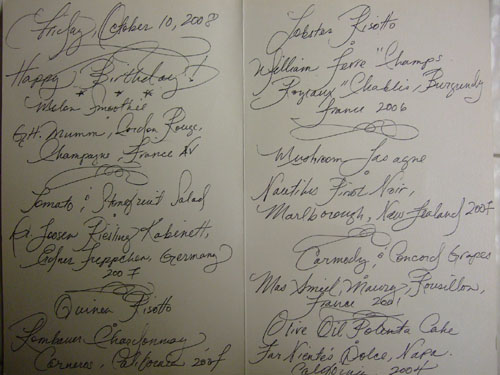 Friday, October 10, 2008
Happy Birthday!
Melon Smoothie
G.H. Mumm, Cordon Rouge,
Champagne, France NV
Tomato & Stonefruit Salad
Dr. Loosen Riesling Kabinett,
Erdner Treppchen, Germany
2007
Quinea Risotto
Rombauer Chardonnay
Carneros, California 2007
Lobster Risotto
William Fevre "Champs
Royaux" Chablis, Burgundy
France 2006
Mushroom Lasagne
Nautilus Pinot Noir,
Marlborough, New Zealand 2007
Carmody, & Concord Grapes
Mas Amiel, Maury, Rousillon,
France 2001
Olive Oil Polenta Cake
Far Niente's Dolce, Napa,
California 2004